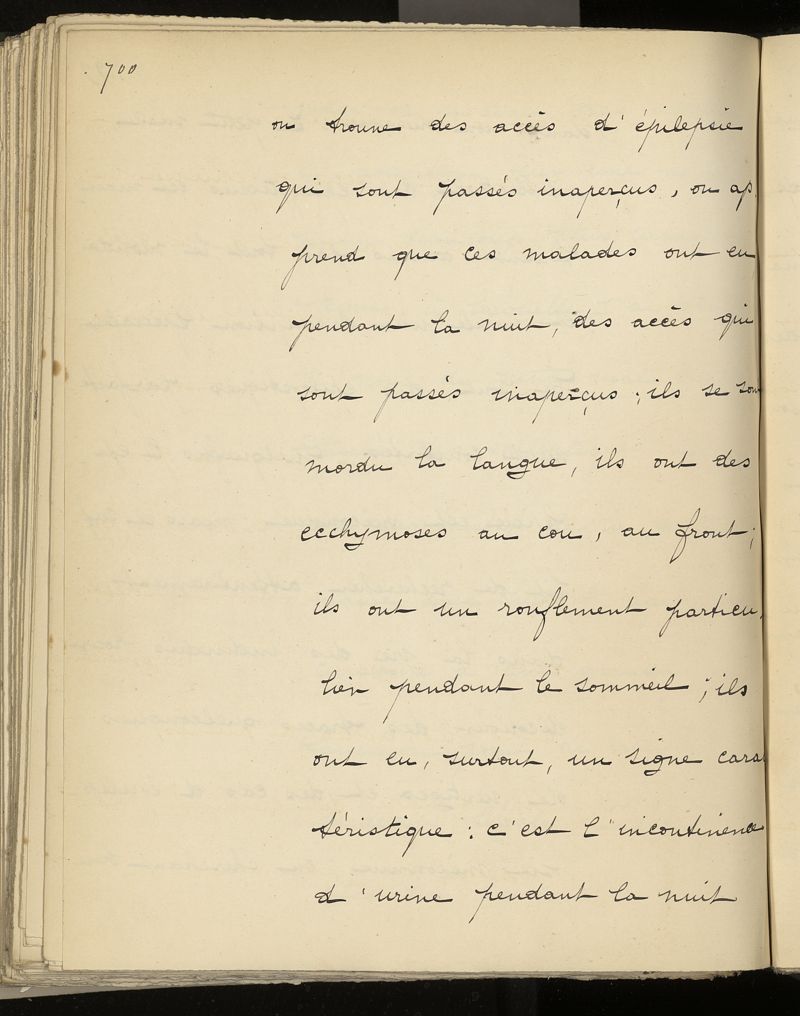 700
on trouve des accès d'épilepsie
qui sont passés inaperçus, on ap-
prend que ces malades ont eu
pendant la nuit, des accès qui
sont passés inaperçus ; ils se sont
mordu la langue, ils ont des
ecchymoses au cou, au front ;
ils ont un ronflement particu-
lier pendant le sommeil ; ils
ont eu, surtout, un signe carac
téristique : c'est l'incontinence
d'urine pendant la nuit